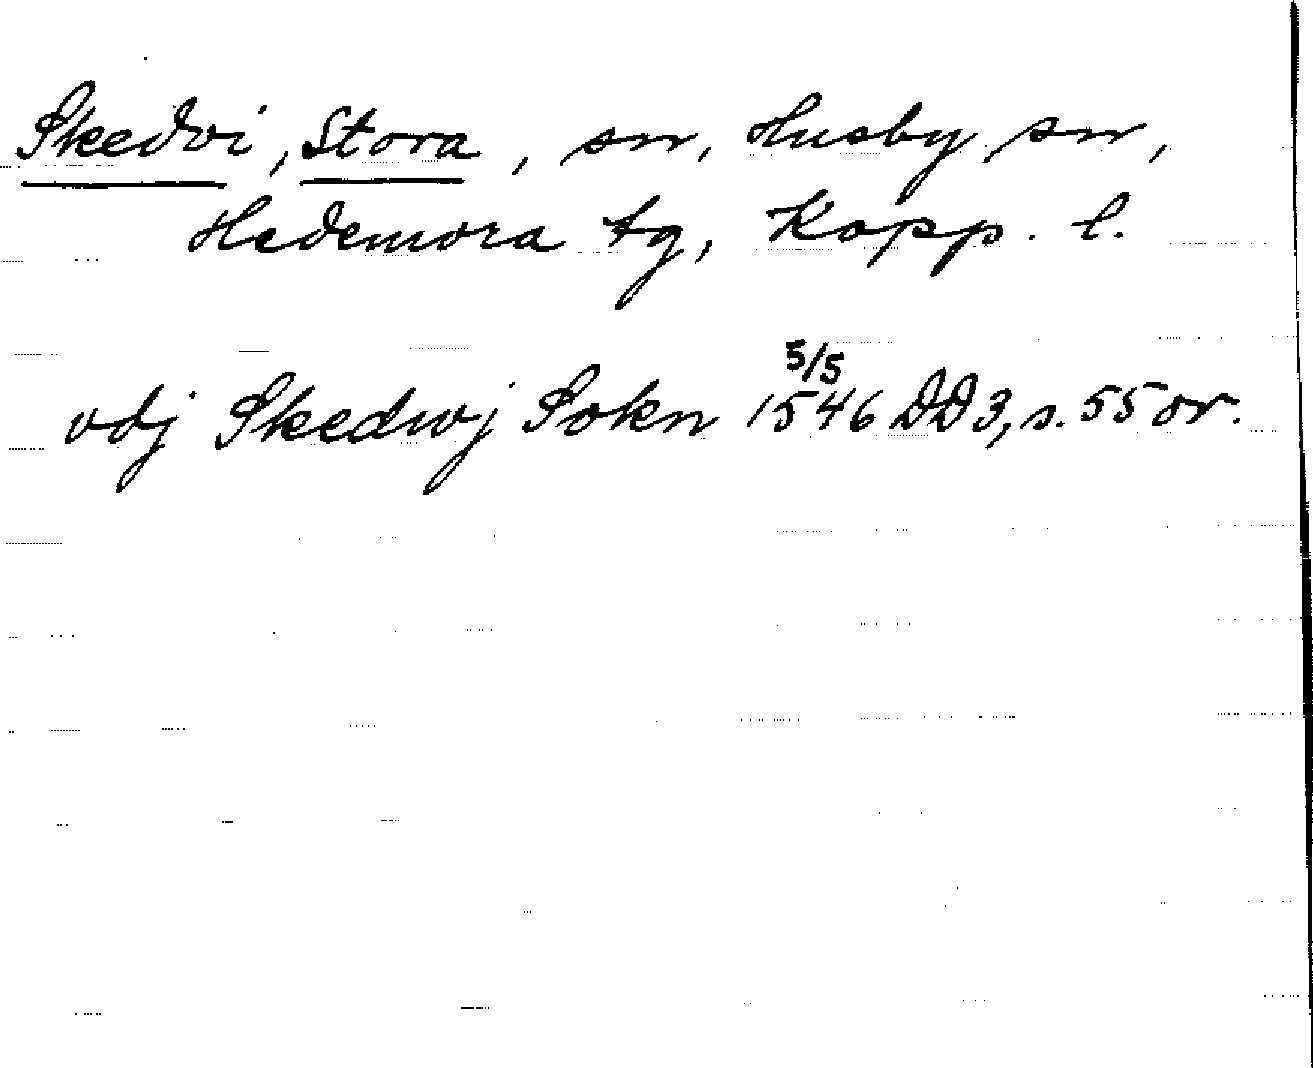 Skedvi, Stora, sn, Husby sn,
Hedemora tg, Kopp. l.
vdj Skedwj Sokn 5/5 1546 DD3, s. 55 or.